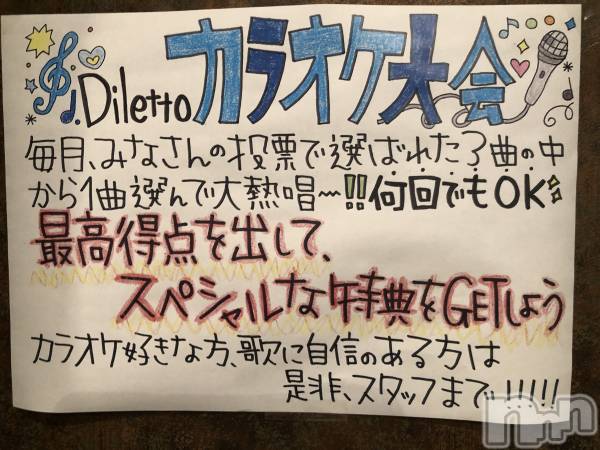 Diletto カラオケ大会
毎月、みなさんの投票で選ばれた3曲の中
から1曲選んで大熱唱〜!!何回でもOK!!
最高得点を出して、
スペシャルな特典をGETしよう
カラオケ好きな方、歌に自信のある方は
是非、スタッフまで!!!!!